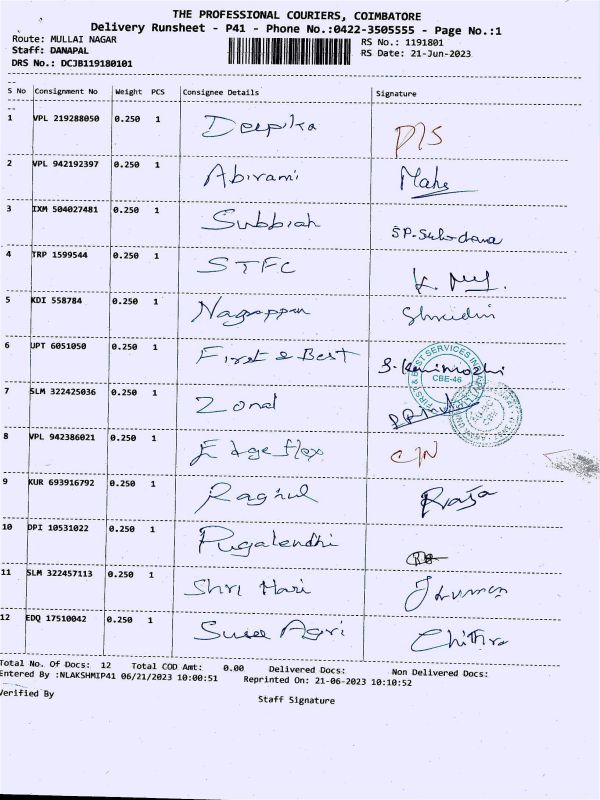 THE PROFESSIONAL COURIERS, COIMBATORE
Delivery Runsheet - P41 - Phone No.:0422-3505555 - Page No.:1
Route: MULLAI NAGAR RS No.: 1191801
Staff: DANAPAL RS Date: 21-Jun-2023
DRS No.: DCJB119180101
S No Consignment No Weight PCS Consignee Details Signature
1 VPL 219288050 0.250 1 Deepika D/S
2 VPL 942192397 0.250 1 Abirami Mahe
3 IXM 504027481 0.250 1 Subbiah SP.
4 TRP 1599544 0.250 1 STFC K.
5 KDI 558784 0.250 1 Nagappan
6 UPT 6051050 0.250 1 First & Best
FIRST & BEST SERVICES IN
CBE-46
7 SLM 322425036 0.250 1 Zonal
8 VPL 942386021 0.250 1 Edge flex C/N
9 KUR 693916792 0.250 1 Raghul Raja
10 DPI 10531022 0.250 1 Pugalendhi
11 SLM 322457113 0.250 1 Shri Hari
12 EDQ 17510042 0.250 1 Agri Chithra
Total No. Of Docs: 12 Total COD Amt: 0.00 Delivered Docs: Non Delivered Docs:
Entered By :NLAKSHMIP41 06/21/2023 10:00:51 Reprinted On: 21-06-2023 10:10:52
Verified By Staff Signature